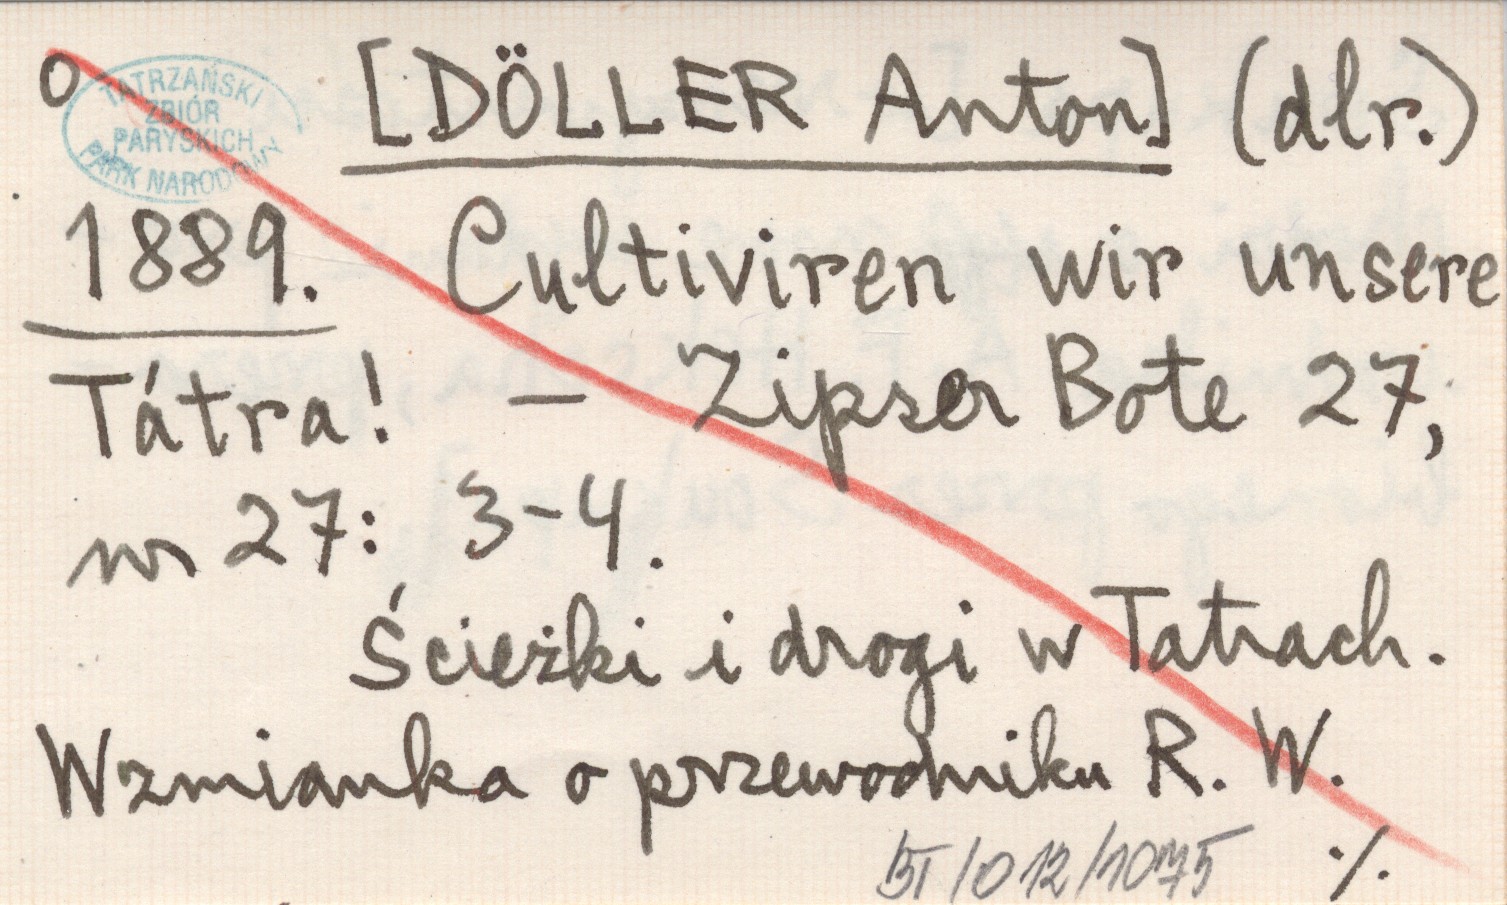 o [DÖLLER Anton] (dlr.)
TATRZAŃSKI
ZBIÓR
PARYSKICH
PARK NARODOWY
1889. Cultiviren wir unsere
Tátra! — Zipser Bote 27,
nr 27: 3-4.
Ścieżki i drogi w Tatrach.
Wzmianka o przewodniku R. W.
BT/012/1075 ./.